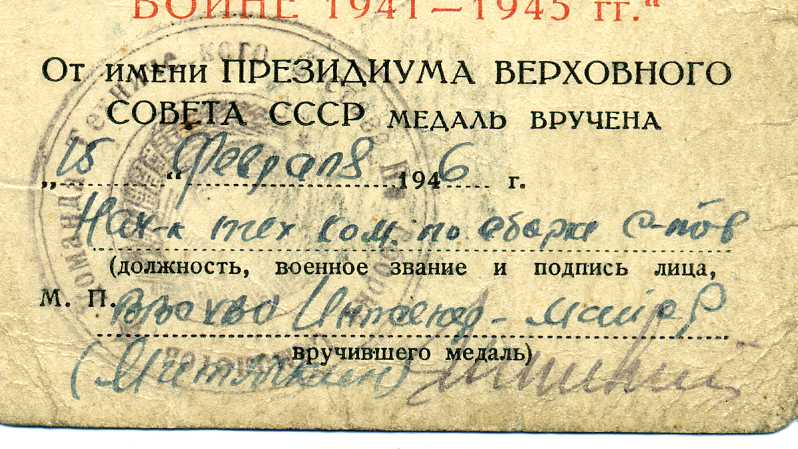 ВОЙНЕ 1941—1945 гг."
От имени ПРЕЗИДИУМА ВЕРХОВНОГО
СОВЕТА СССР МЕДАЛЬ ВРУЧЕНА
„15" Февраля 1946 г.
Нач-к тех ком. по сборке с-тов
(должность, военное звание и подпись лица,
М. П. Интенд-майор
вручившего медаль)